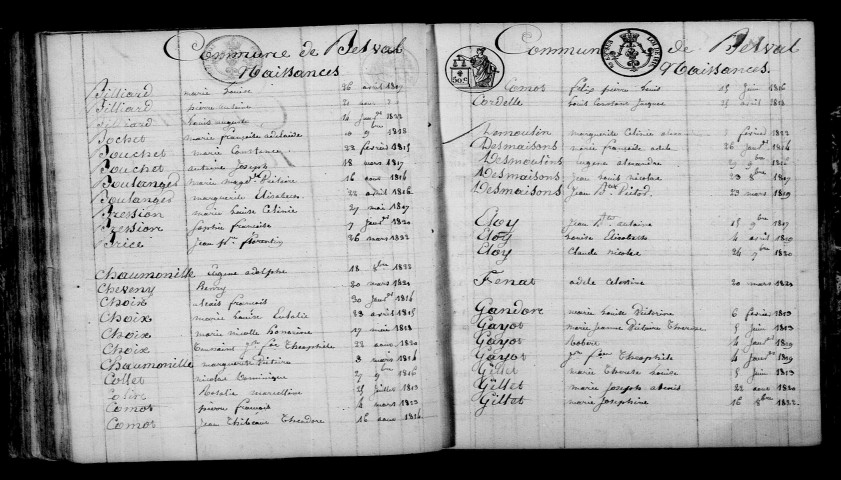 Commune de Belval
Naissances
Billiard marie Louise 26 avril 1809
Billiard pierre antoine 21
Billiard Louis auguste 14 1822
Bochet marie françoise adelaide 10 9 1818
Bouchet marie Constance 22 février 1815
Bouchet antoine Joseph 18 mars 1817
Boulanger marie 16 aout 1816
Boulanger marguerite Elisabeth 22 avril 1816
Bression marie Louise Celinie 27 mai 1807
Bression Sophie françoise 7 1820
Brice jean florentin 26 mars 1822
Chaumonille Eugene adolphe 18 8bre 1822
Cheveny Remy 20 mars 1821
Choix Alexis françois 30 1816
Choix marie Louise Eulalie 23 avril 1815
Choix marie nicolle honorine 17 mai 1818
Choix Toussaint Theophile 22 aout 1820
Chaumonille marguerite 8 mars 1816
Collet nicolas Dominique 27 9bre 1816
Rosalie marcelline 25 juillet 1813
Comot pierre françois 4 mars 1823
Comot jean Thibeaux Theodore 16 aout 1816
50 c
Commune de Belval
Naissances.
Comot felix pierre Louis 15 juin 1816
Cordelle Louis Constant Jacques 25 avril 1813
Demoulin marguerite Celinie 3 février 1822
Desmaisons marie françoise adele 26 1816
Desmoulins Eugene alexandre 29 9bre 1816
Desmaisons Jean Louis nicolas 23 8bre 1817
Desmaisons Jean Bte 23 mars 1819
Eloy jean Bte antoine 15 9bre 1817
Eloy Louise Elisabeth 4 avril
Eloy Claude nicolas 26 9bre 1820
Fenat adele Celestine 20 mars
Gandore marie Louise Victorine 6 février 1813
Gayot marie jeanne Victoire Therese 5 juin 1813
Gayot Robert 4 1819
Gayot Theophile 4 1819
Gillet marie Therese Louise 5 juin 1813
Gillet marie Joseph alexis 22 aout 1820
Gillet marie Josephine 16 8bre 1822